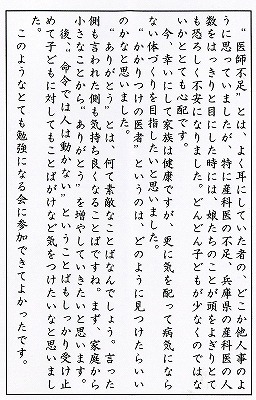 “医師不足”とは、よく耳にしていた者の、どこか他人事のよ
うに思っていましたが、特に産科医の不足、兵庫県の産科医の人
数をはっきりと目にした時には、娘たちのことが頭をよぎりとて
も恐ろしく不安になりました。どんどん子どもが少なくのではな
いかととても心配です。
今、幸いにして家族は健康ですが、更に気を配って病気になら
ない体づくりを目指したいと思いました。
“かかりつけの医者”というのは、どのように見つけたらいい
のかなと思いました。
“ありがとう”とは、何て素敵なことばなんでしょう。言った
側も言われた側も気持ち良くなることばですね。まず、家庭から
小さなことから“ありがとう”を増やしていきたいと思います。
後、“命令では人は動かない”ということばもしっかり受け止
めて子どもに対してもことばがけなど気をつけたいなと思いまし
た。
このようなとても勉強になる会に参加できてよかったです。